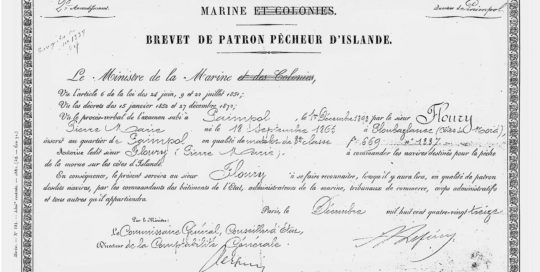 2e Arrondissement.
Quartier de Paimpol
MARINE ET COLONIES.
BREVET DE PATRON PÊCHEUR D'ISLANDE.
Le Ministre de la Marine et des Colonies,
Vu l'article 6 de la loi des 24 juin, 9 et 22 juillet 1851;
Vu les décrets des 15 janvier 1852 et 27 décembre
Vu le procès-verbal de l'examen subi à Paimpol le 1er Décembre 1893 par le sieur Floury
Pierre Marie né le 18 Septembre 1866 à Ploubazlanec (Côtes du Nord)
inscrit au quartier de Paimpol en qualité de matelot de classe fo 669 no 1337
Autorise ledit sieur Floury (Pierre Marie) à commander les navires destinés pour la pêche
de la morue sur les côtes d'Islande.
En conséquence, le présent servira au sieur Floury à se faire reconnaître, lorsqu'il y aura lieu, en qualité de patron
desdits navires, par les commandants des bâtiments de l'État, administrateurs de la marine, tribunaux de commerce, corps administratifs
et tous autres qu'il appartiendra.
Paris, le Décembre mil huit cent quatre-vingt treize
Par le Ministre:
Le Commissaire Général, Conseiller d'État
Directeur de la Comptabilité Générale